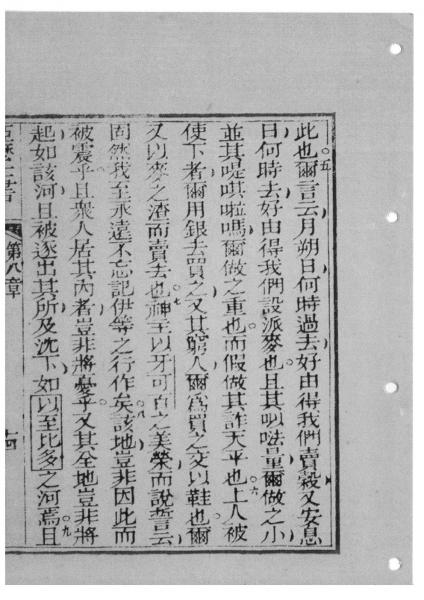 此也五爾言云月朔日何時過去好由得我們賣穀又安息
日何時去好由得我們設派麥也且其量爾做之小
並其唭啦嗎爾做之重也而假做其詐天平也六上人被
使下者爾用銀去買之又其窮人爾爲買之交以鞋也爾
又以麥之渣而賣去也七神至以牙可百之美榮而說誓云
固然我至永遠不忘記伊等之行作矣八該地豈非因此而
被震乎且衆人居其內者豈非將憂乎又其全地豈非將
起如該河且被逐出其所及沈下如以至比多之河焉九且
書 第八章